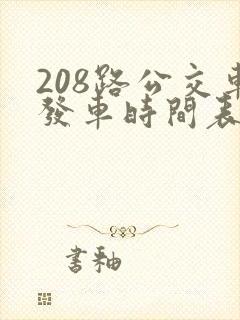 208路公交車
發車時間表
書釉